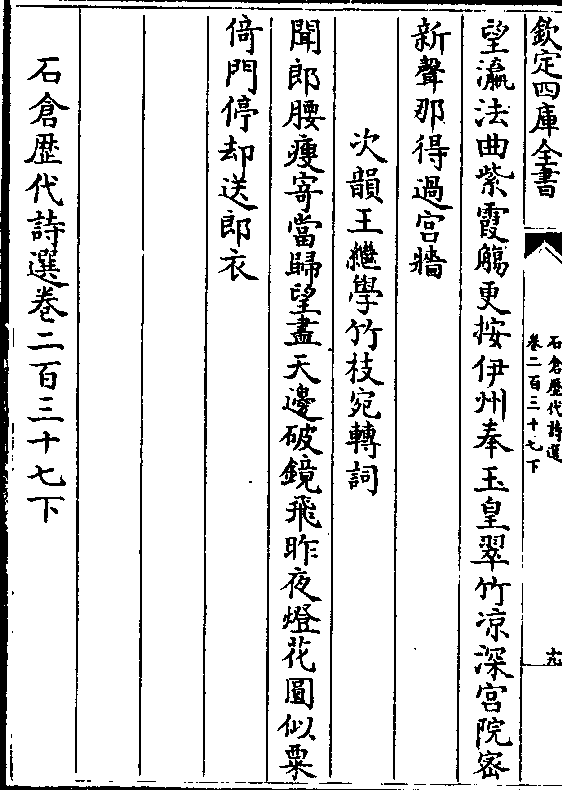 欽定四庫全書
石倉歷代詩選
卷二百三十七下
十九
望瀛法曲紫霞觴更按伊州奉玉皇翠竹凉深宫院密
新聲那得過宫牆
次韻王繼學竹枝宛轉詞
聞郎腰瘦寄當歸望盡天邊破鏡飛昨夜燈花圓似粟
倚門停却送郎衣
石倉歷代詩選卷二百三十七下